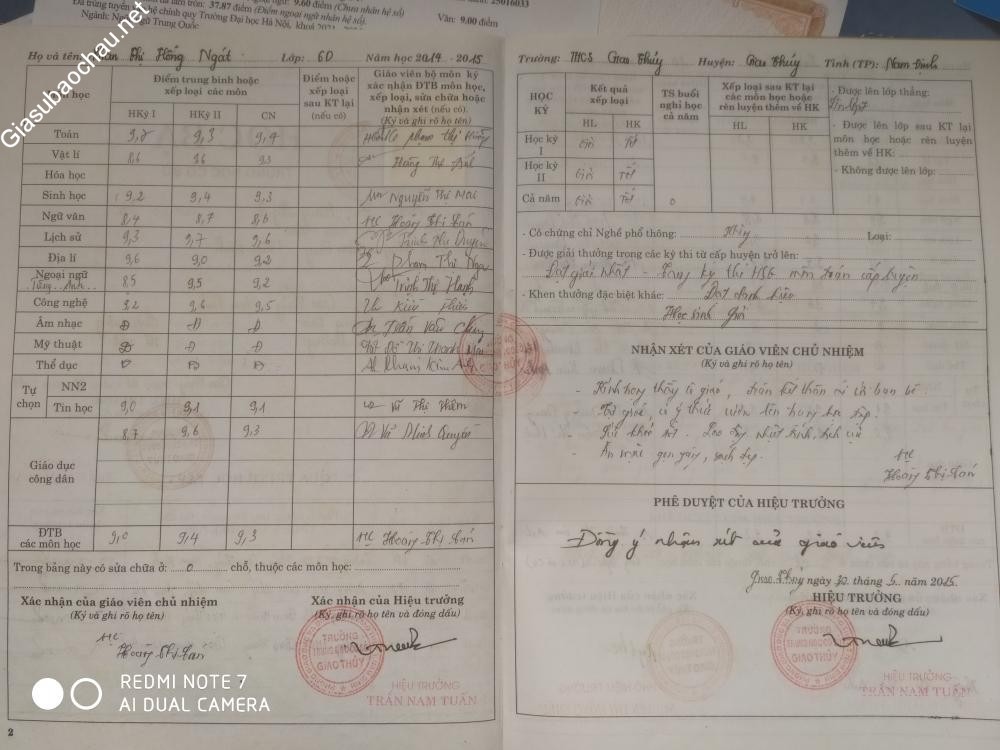 Đã trúng tuyển hệ chính quy Trường Đại học Hà Nội, khoá 2021
37.87 điểm (Điểm ngoại ngữ nhân hệ số)
9.60 điểm (Chưa nhân hệ số)
Văn: 9.00 điểm
25016033
Giasubaochau.net
Họ và tên: Thị Hồng Ngát Lớp: 6D Năm học 2014 - 2015
Điểm trung bình hoặc xếp loại các môn
HKỳ I HKỳ II CN
Điểm hoặc xếp loại sau KT lại (nếu có)
Giáo viên bộ môn ký
xác nhận ĐTB môn học,
xếp loại, sửa chữa hoặc
nhận xét (nếu có).
(Ký và ghi rõ họ tên)
Toán 9,2 9,3 9,4
Vật lí 8,6 9,6 9,3
Hóa học
Sinh học 9,2 9,4 9,3 Nguyễn Thị Mai
Ngữ văn 8,4 8,7 8,6 Hoàng Thị
Lịch sử 9,3 9,7 9,6
Địa lí 9,6 9,0 9,2 Phạm Thị
Ngoại ngữ
Tiếng Anh 8,5 9,5 9,2 Trịnh Thị Hạnh
Công nghệ 8,2 9,6 9,5
Âm nhạc Đ Đ Đ Trần Văn
Mỹ thuật Đ Đ Đ
Thể dục Đ Đ Đ
Tự chọn
NN2
Tin học 9,0 9,1 9,1 Vũ Thị Thêm
Giáo dục công dân 8,7 9,6 9,3 Vũ Minh
ĐTB
các môn học 9,0 9,4 9,3 Hoàng Thị
Trong bảng này có sửa chữa ở: 0 chỗ, thuộc các môn học:
Xác nhận của giáo viên chủ nhiệm
(Ký và ghi rõ họ tên)
Hoàng Thị
Xác nhận của Hiệu trưởng
(Ký, ghi rõ họ tên và đóng dấu)
TRƯỜNG
TRUNG HỌC CƠ SỞ
GIAO THỦY
HIỆU TRƯỞNG
TRẦN NAM TUẤN
REDMI NOTE 7
AI DUAL CAMERA
2
Trường: THCS Giao Thủy Huyện: Giao Thủy Tỉnh (TP): Nam Định
HỌC KỲ
Kết quả xếp loại
HL HK
TS buổi nghỉ học cả năm
Xếp loại sau KT lại
các môn học hoặc
rèn luyện thêm về HK
HL HK
Học kỳ I Giỏi Tốt
Học kỳ II Giỏi Tốt
Cả năm Giỏi Tốt 0
- Được lên lớp thẳng:
- Được lên lớp sau KT lại
môn học hoặc rèn luyện
thêm về HK:
- Không được lên lớp:
- Có chứng chỉ Nghề phổ thông: Loại:
- Được giải thưởng trong các kỳ thi từ cấp huyện trở lên:
Đạt giải Nhất - Trong kỳ thi HSG môn toán cấp huyện
- Khen thưởng đặc biệt khác: Đạt danh hiệu
Học sinh Giỏi
NHẬN XÉT CỦA GIÁO VIÊN CHỦ NHIỆM
(Ký và ghi rõ họ tên)
- Kính trọng thầy cô giáo, đoàn kết thân ái với bạn bè.
có ý thức vươn lên trong học tập.
- Lao động nhiệt tình, tích cực
- Ăn mặc gọn gàng, sạch đẹp.
Hoàng Thị
PHÊ DUYỆT CỦA HIỆU TRƯỞNG
Đồng ý nhận xét của giáo viên
Giao Thủy ngày tháng 5 năm 2015
HIỆU TRƯỞNG
(Ký, ghi rõ họ tên và đóng dấu)
TRƯỜNG
TRUNG HỌC CƠ SỞ
GIAO THỦY
HIỆU TRƯỞNG
TRẦN NAM TUẤN